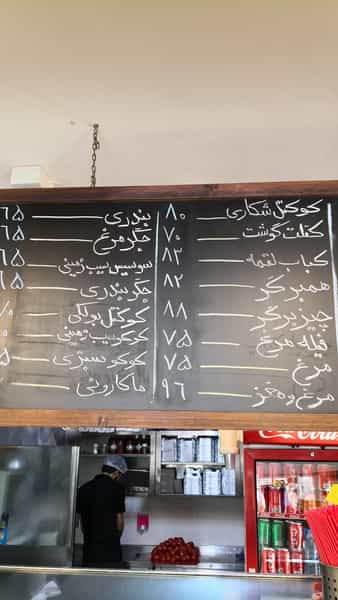 کوکتل شکاری ۸۰
کتلت گوشت ۷۰
کباب لقمه ۸۲
همبرگر ۸۲
چیزبرگر ۸۸
فیله مرغ ۷۵
مرغ ۷۵
مرغ و مغز ۹۶
بندری ۶۵
جگر مرغ ۶۵
سوسیس سیب زمینی ۶۵
جگر بندری ۶۵
کوکتل پولکی
کوکو سیب زمینی
کوکو سبزی
ماکارونی